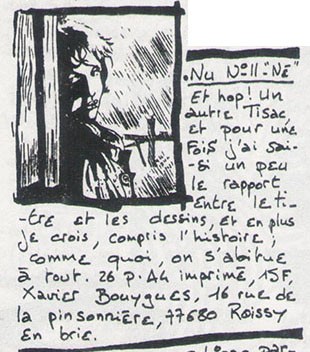 Nu N°11 "Né"
Et hop! Un
autre Tisac,
et pour une
fois j'ai sai-
-si un peu
le rapport
entre le ti-
-tre et les dessins, et en plus
je crois, compris l'histoire;
comme quoi, on s'abitue
à tout. 26 p. A4 imprimé, 15F,
Xavier Bouygues, 16 rue de
la pinsonnière, 77680 Roissy
en brie.